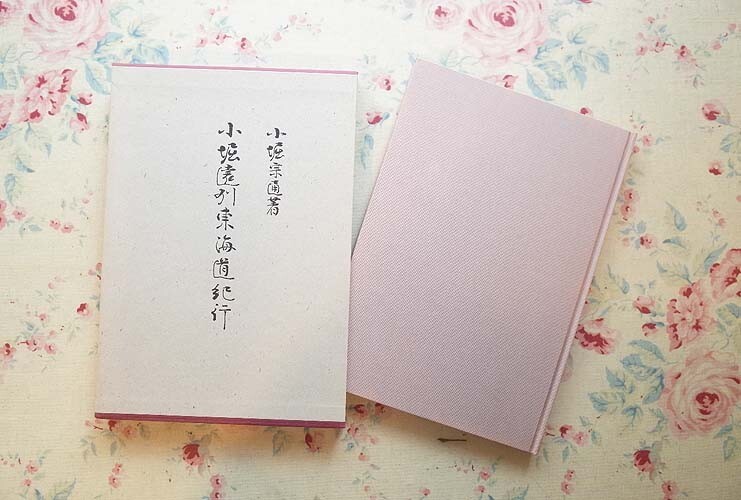 小堀宗通著
小堀遠州東海道紀行